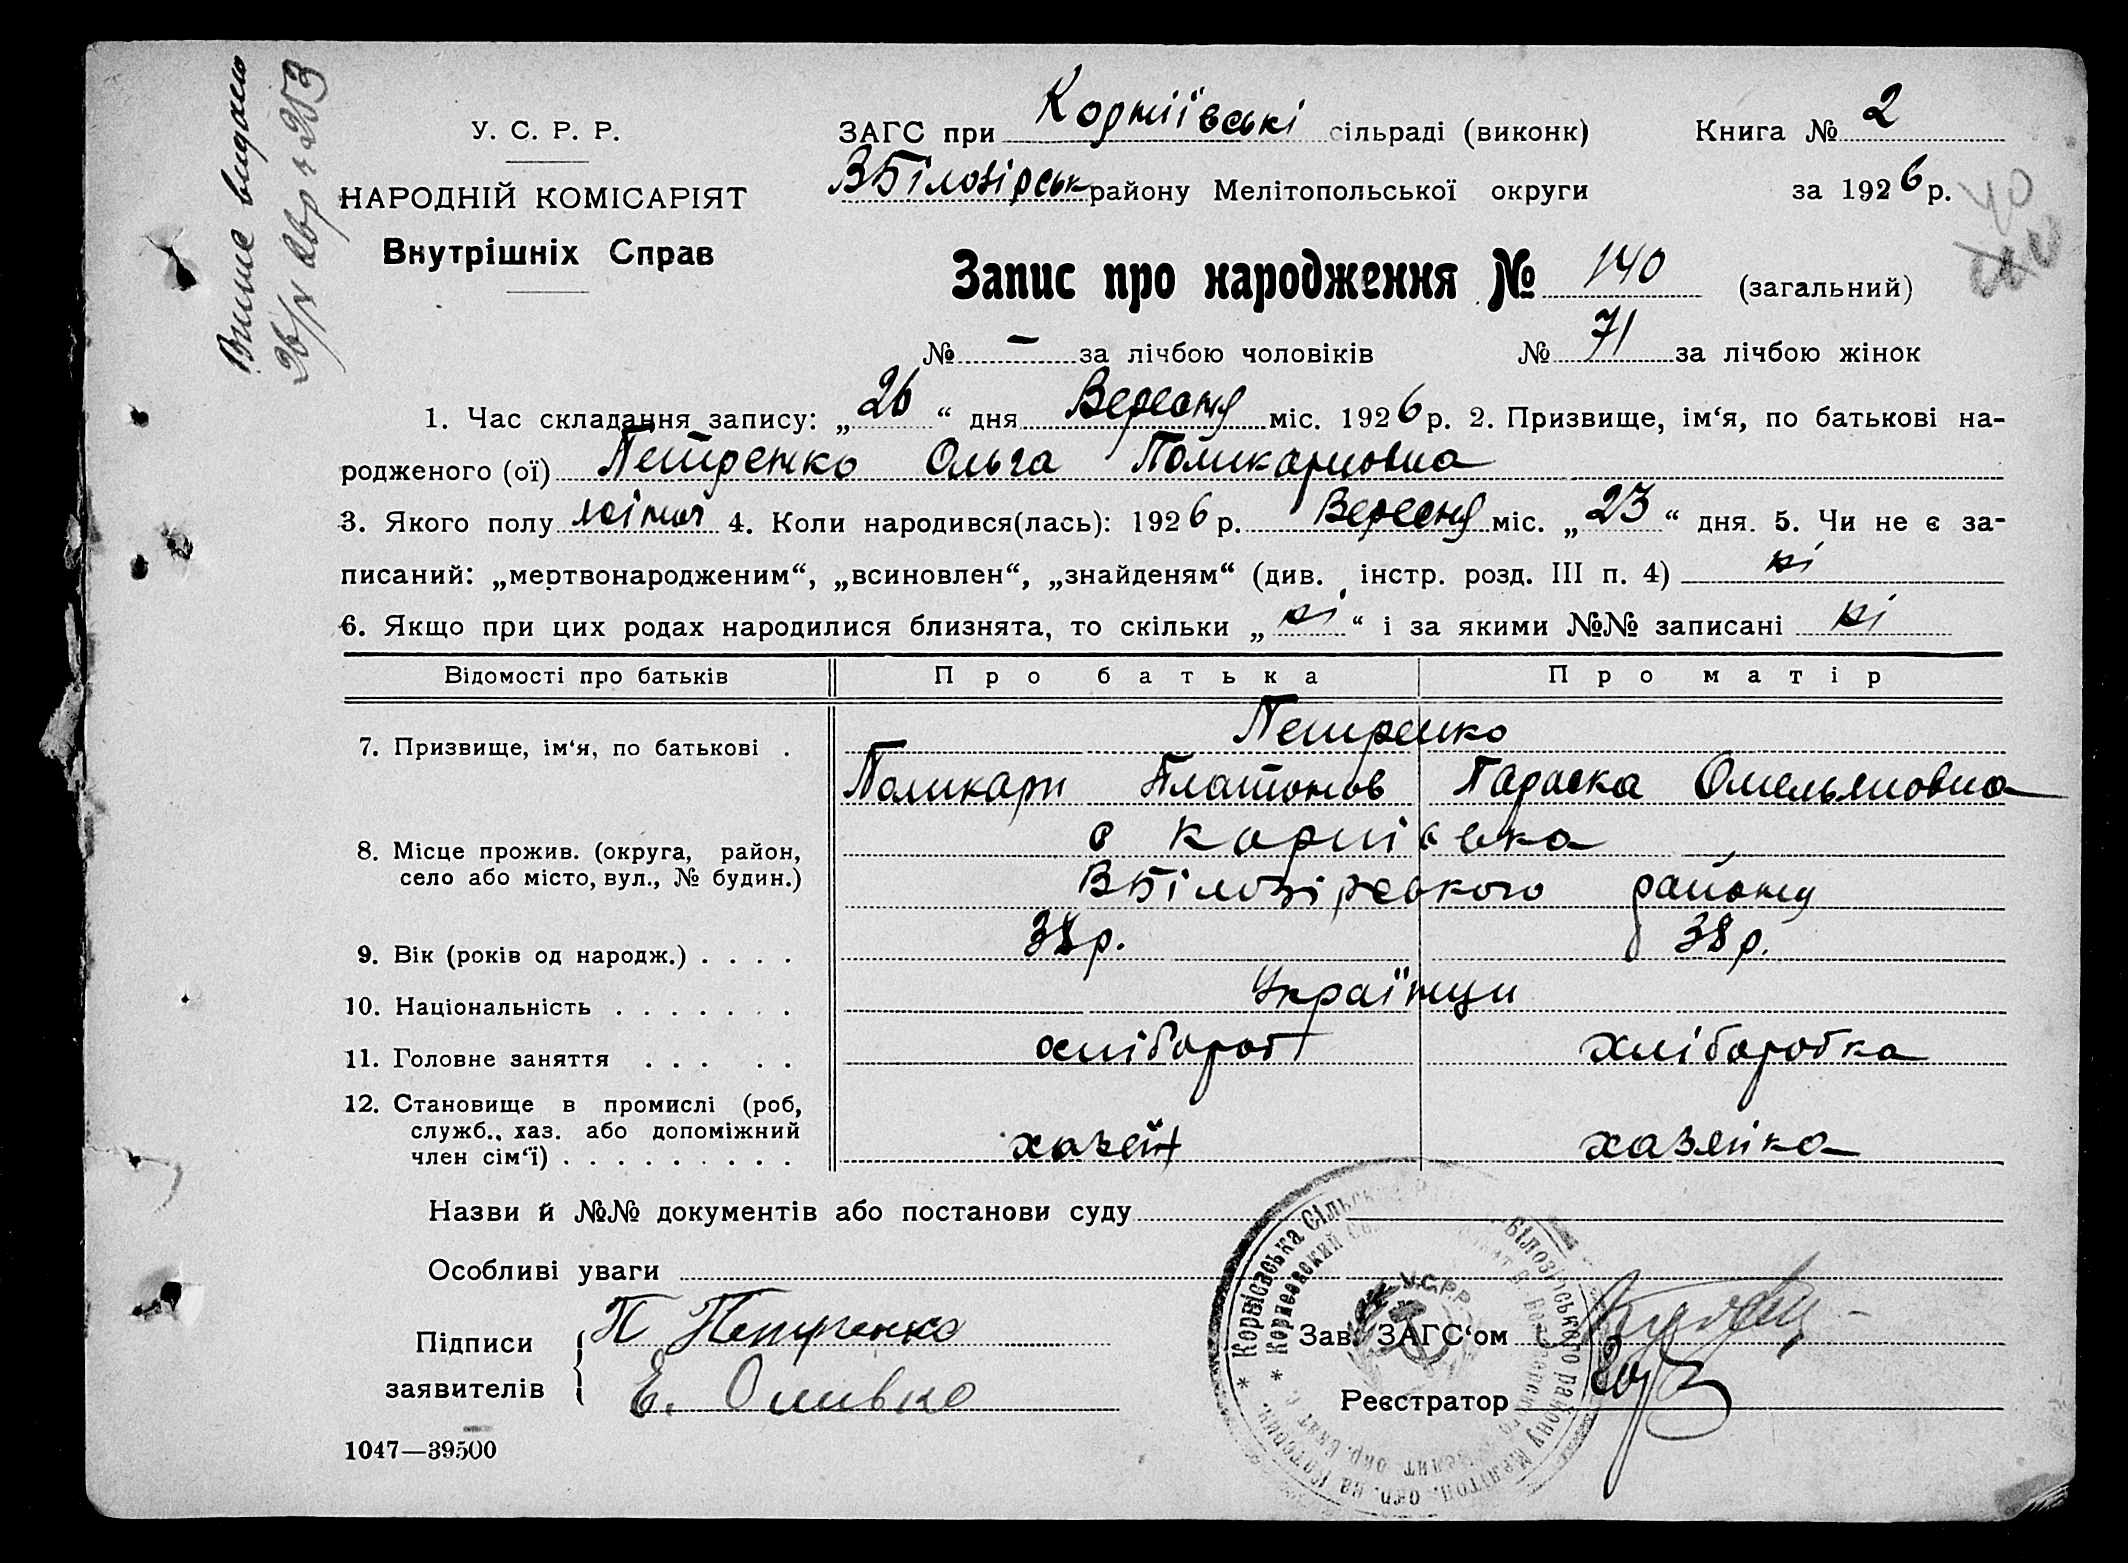 Випис видано
У. С. Р. Р.
НАРОДНІЙ КОМІСАРІЯТ
Внутрішніх Справ
ЗАГС при Корніївські сільраді (виконк) Книга № 2
ВБілозірськ району Мелітопольської округи за 1926 р.
40
Запис про народження № 140 (загальний)
№ — за лічбою чоловіків № 71 за лічбою жінок
1. Час складання запису: „26“ дня Вересня міс. 1926 р. 2. Призвище, ім‘я, по батькові на-
родженого (ої) Петренко Ольга Поликарповна
3. Якого полу жіноч 4. Коли народився(лась): 1926 р. Вересня міс. „23“ дня. 5. Чи не є за-
писаний: „мертвонародженим“, „всиновлен“, „знайденям“ (див. інстр. розд. III п. 4) ні
6. Якщо при цих родах народилися близнята, то скільки „ні“ і за якими №№ записані ні
Відомості про батьків Про батька Про матір
7. Призвище, ім‘я, по батькові . Петренко
Поликарп Платонов Параска Омельяновна
8. Місце прожив. (округа, район, с Корніівка
село або місто, вул., № будин.) ВБілозірского району
9. Вік (років од народж.) . . . . 38 р. 38 р.
10. Національність . . . . . . . Українци
11. Головне заняття . . . . . хлібороб хліборобка
12. Становище в промислі (роб,
служб., хаз. або допоміжний
член сім‘ї) . . . . . . . . . хазяїн хазяйка
Назви й №№ документів або постанови суду
Особливі уваги
Підписи П Петренко
заявителів Е. Оливко
Зав. ЗАГС‘ом
Реєстратор
У.С.Р.Р.
1047—39500